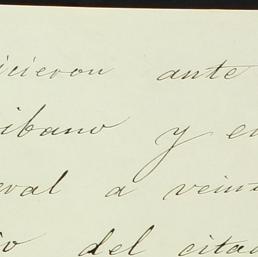 icieron ante
ibano y en
eval a veint
io del citad